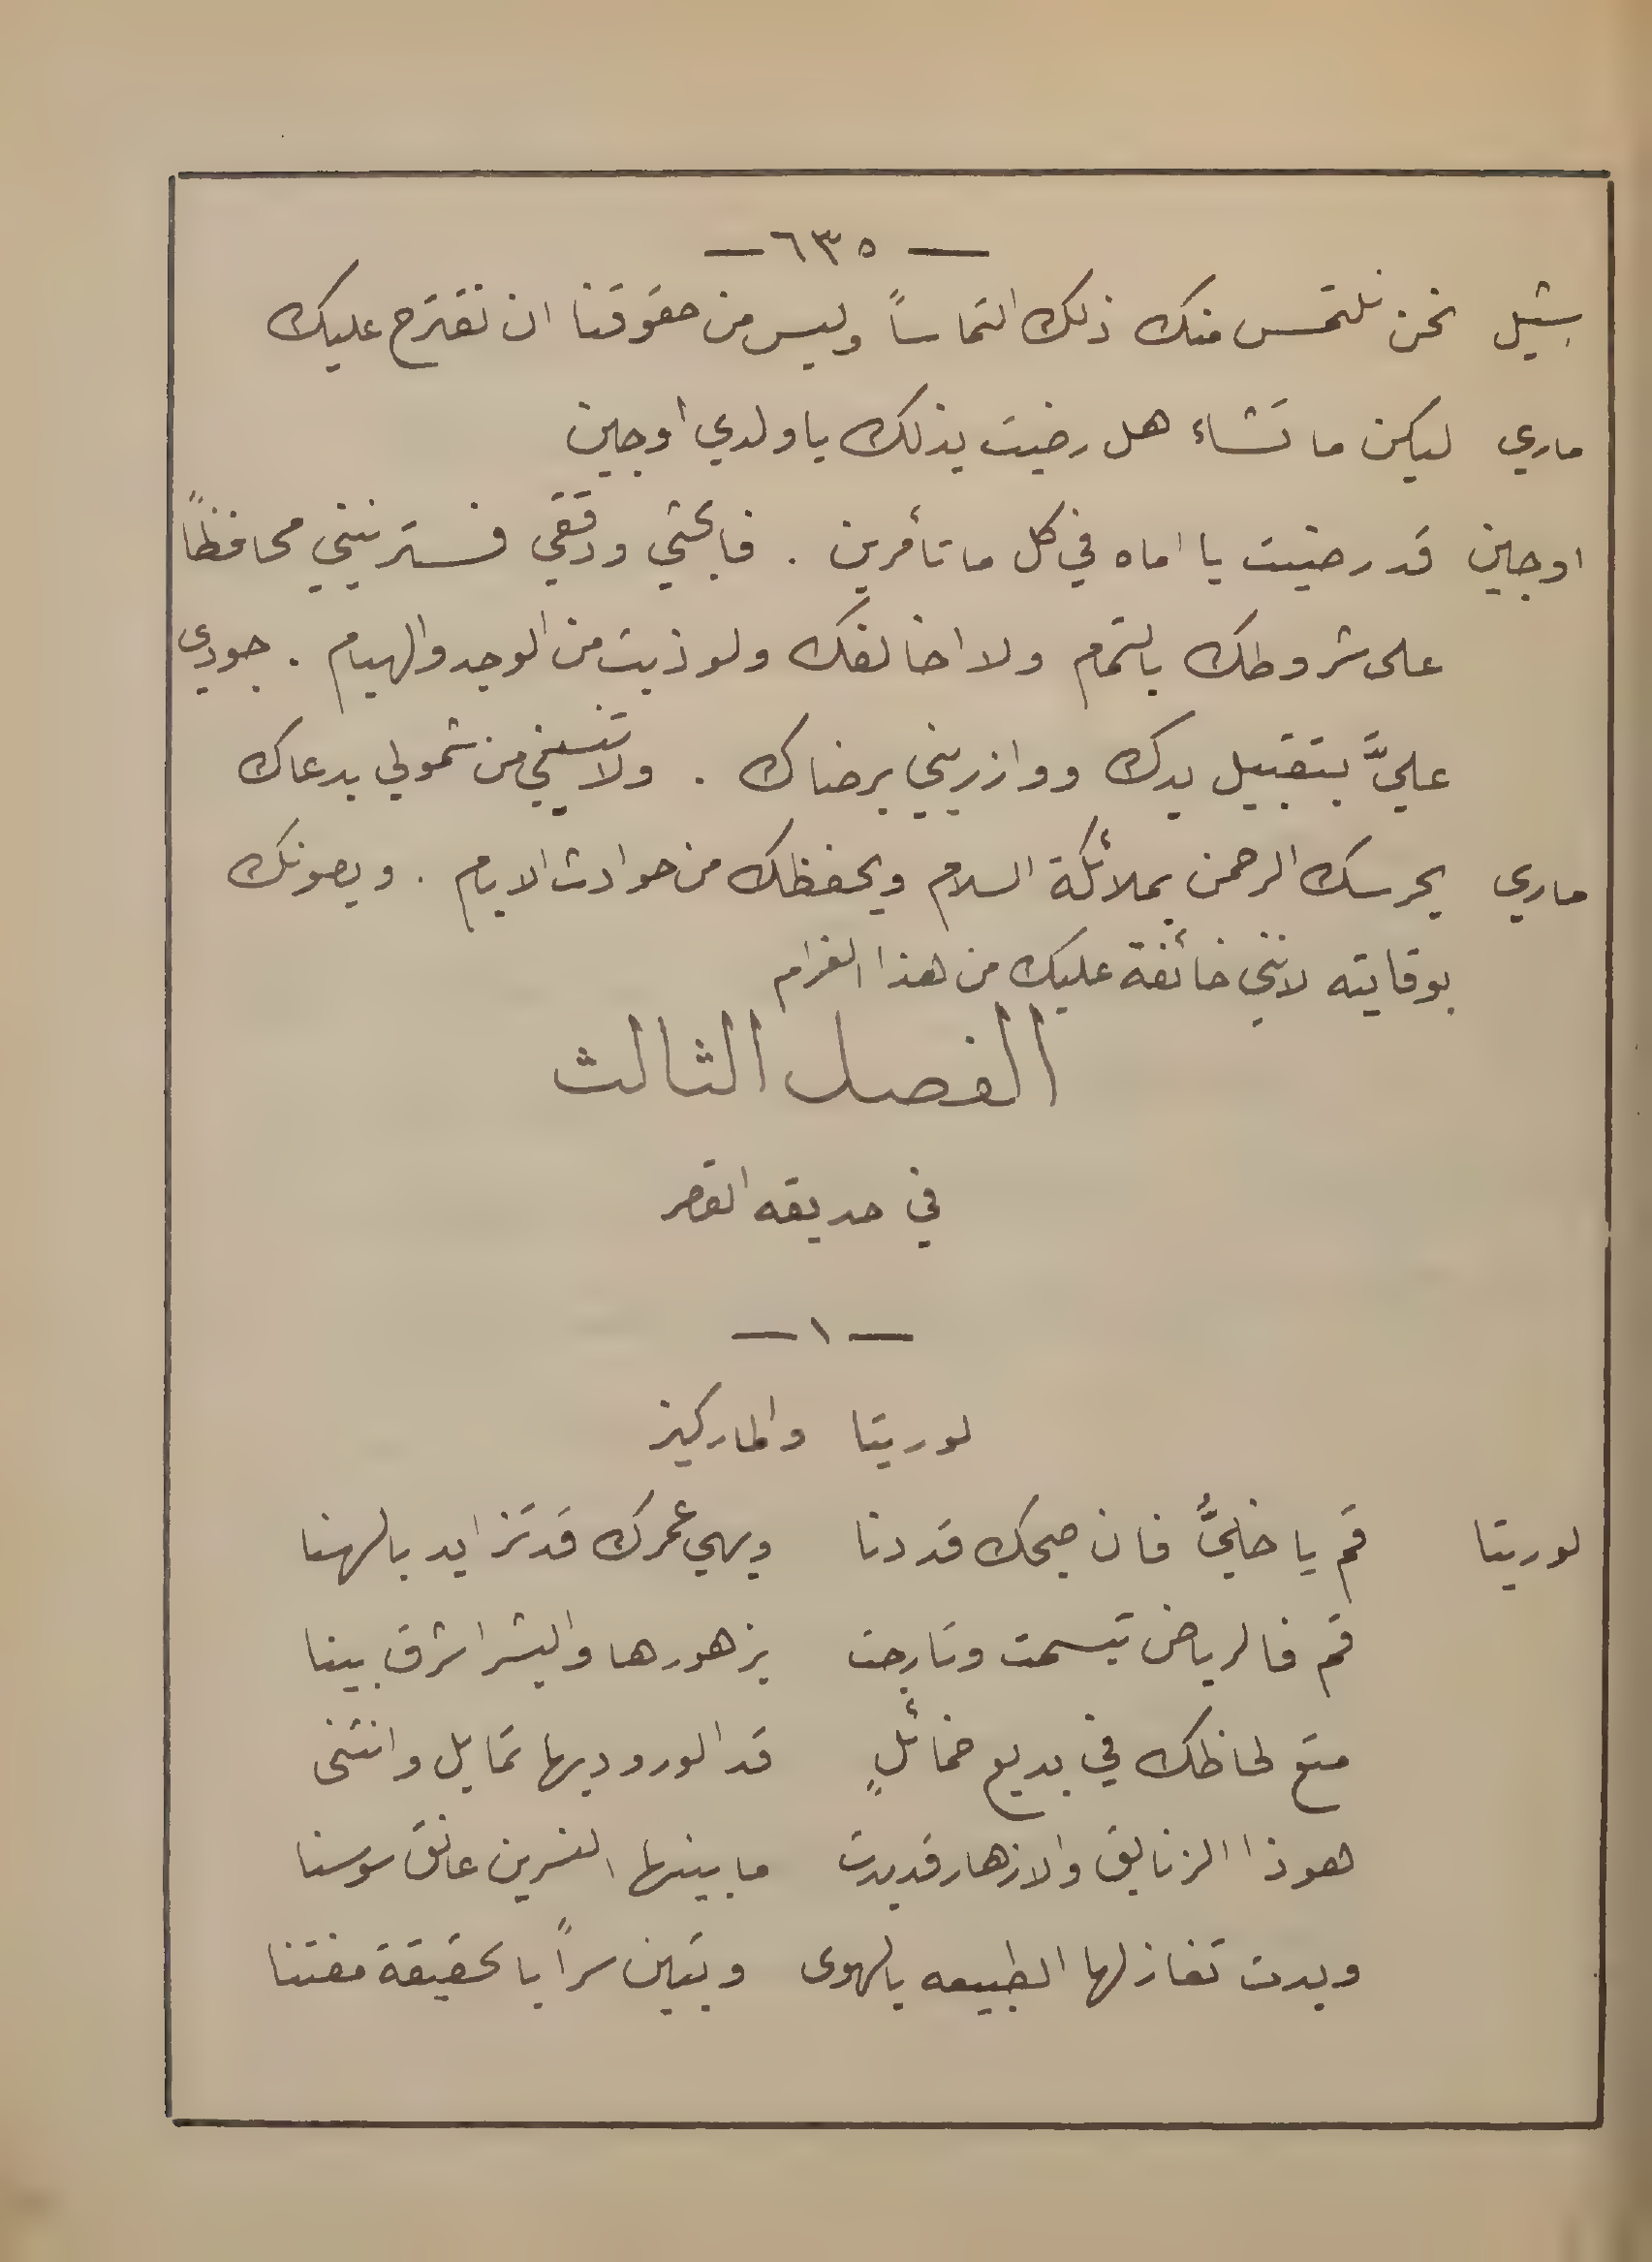 — ٦٣٥ —
بشيل نحن نلتمس منك ذلك التماساً وليس من حقوقنا ان نقترح عليك
ماري ليكن ما تشاء هل رضيت بذلك يا ولدي أوجين
اوجين قد رضيت يا اماه في كل ما تأمرين . فابحثي ودققي فستريني محافظاً
على شروطك بالتمام ولا اخالفك ولو ذبت من الوجد والهيام . جودي
عليَّ بتقبيل يدك ووازريني برضاك . ولا تنسيني من شمولي بدعاك
ماري يحرسك الرحمن بملائكة السلام ويحفظك من حوادث الايام . ويصونك
بوقايته لانني خائفة عليك من هذا الغرام
الفصل الثالث
في حديقه القصر
— ١ —
لوريتا والماركيز
لوريتا قم يا خليَّ فان صبحك قد دنا وبهي عمرك قد تزايد بالهنا
قم فالرياض تبسمت وتارجت بزهورها والبشر اشرق بيننا
متع لحاظك في بديع خمائلٍ قد الورود بها تمايل وانثنى
هوذا الزنابق والازهار قد بدت ما بينها النسرين عانق سوسنا
وبدت تغازلها الطبيعه بالهوى وتبين سراً بالحقيقة مفتنا